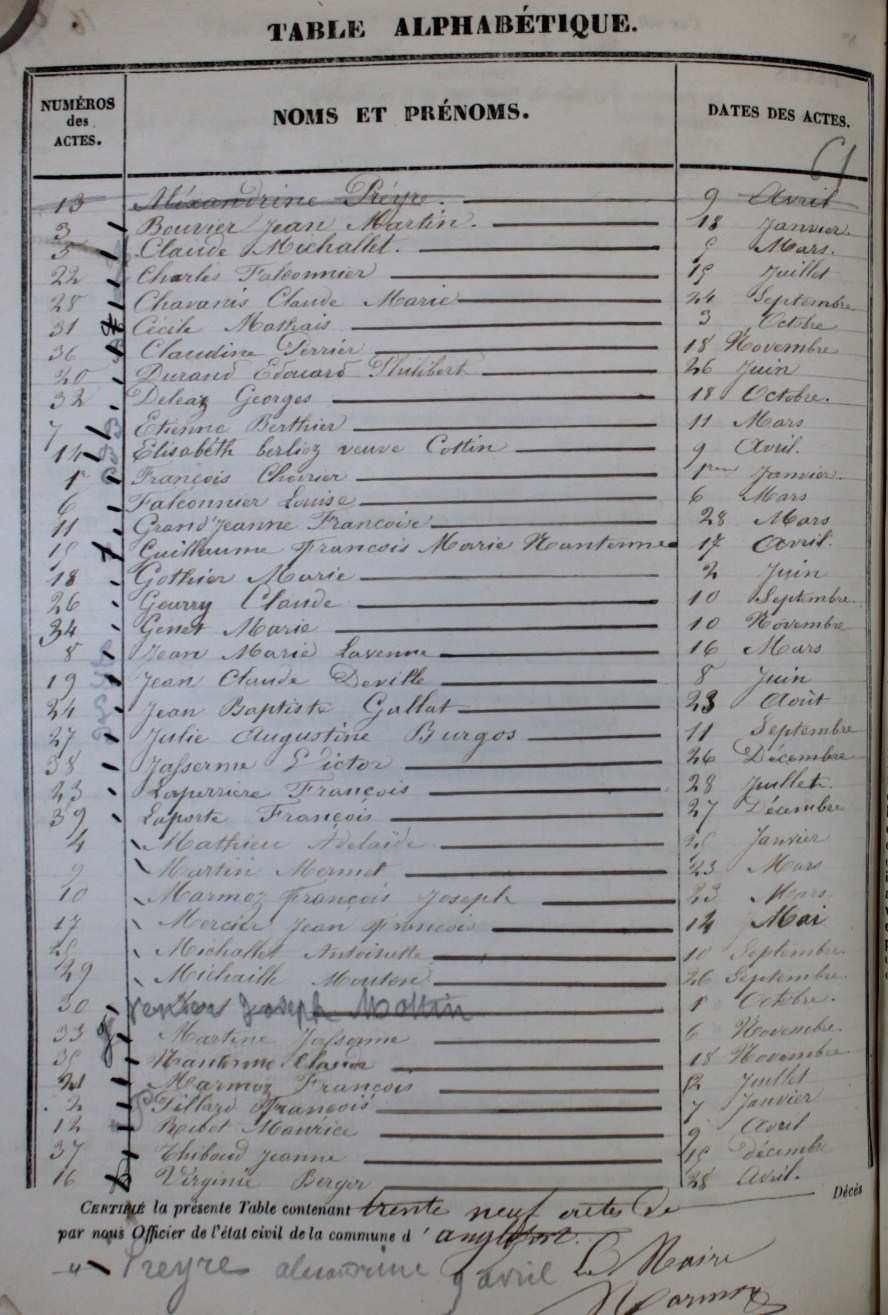 TABLE ALPHABÉTIQUE.
NUMÉROS des ACTES. NOMS ET PRÉNOMS. DATES DES ACTES.
61
13 Aléxandrine Préyre. 9 Avril
3 Bouvier Jean Martin. 18 Janvier.
5 Claude Michallet. 5 Mars.
22 Charles Falconnier 15 Juillet
28 Chavanis Claude Marie 24 Septembre
31 Cécile Mathais 3 Octbre
36 Claudine Perrier 18 Novembre
20 Durand Edouard Philibert 26 Juin
32 Deleaz Georges 18 Octobre.
7 Etienne Berthier 11 Mars
14 Elisabéth berlioz veuve Cottin 9 Avril.
1er François Chevrier 1er Janvier.
6 Falconnier Louise 6 Mars
11 Grand Jeanne Françoise 28 Mars
15 Guillaume François Marie Nantenne 17 Avril.
18 Gothier Marie 2 Juin
26 Gourry Claude 10 Septembre.
34 Genet Marie 10 Novembre
8 Jean Marie Lavenne 16 Mars
19 Jean Claude Deville 8 Juin
24 Jean Baptiste Gallat 23 Août
27 Julie Augustine Burgos 11 Septembre
38 Jasserme Victor 26 Décembre
23 Laperriere François 28 Juillet.
39 Laporte François 27 Décembre
4 Mathieu Adelaïde 25 Janvier
9 Martin Mermet 23 Mars
10 Marmoz François Joseph 23 Mars
17 Mercier Jean François 12 Mai
25 Michallet Antoinette 10 Septembre
29 Michaille Mouton 26 Septembre.
30 Joseph Mottin 1 Octobre.
33 Martine Jasserme 6 Novembre.
35 Nantenne Claude 18 Novembre
21 Marmoz François 2 Juillet
2 Pillard François 7 Janvier
12 Robot Maurice 9 Avril
37 Thiboud Jeanne 15 décembre
16 Virginie Berger 28 Avril.
CERTIFIÉ la présente Table contenant trente neuf actes de Décès
par nous Officier de l'état civil de la commune d'anglefort.
Preyre alexandrine 9 avril Le Maire
Marmoz